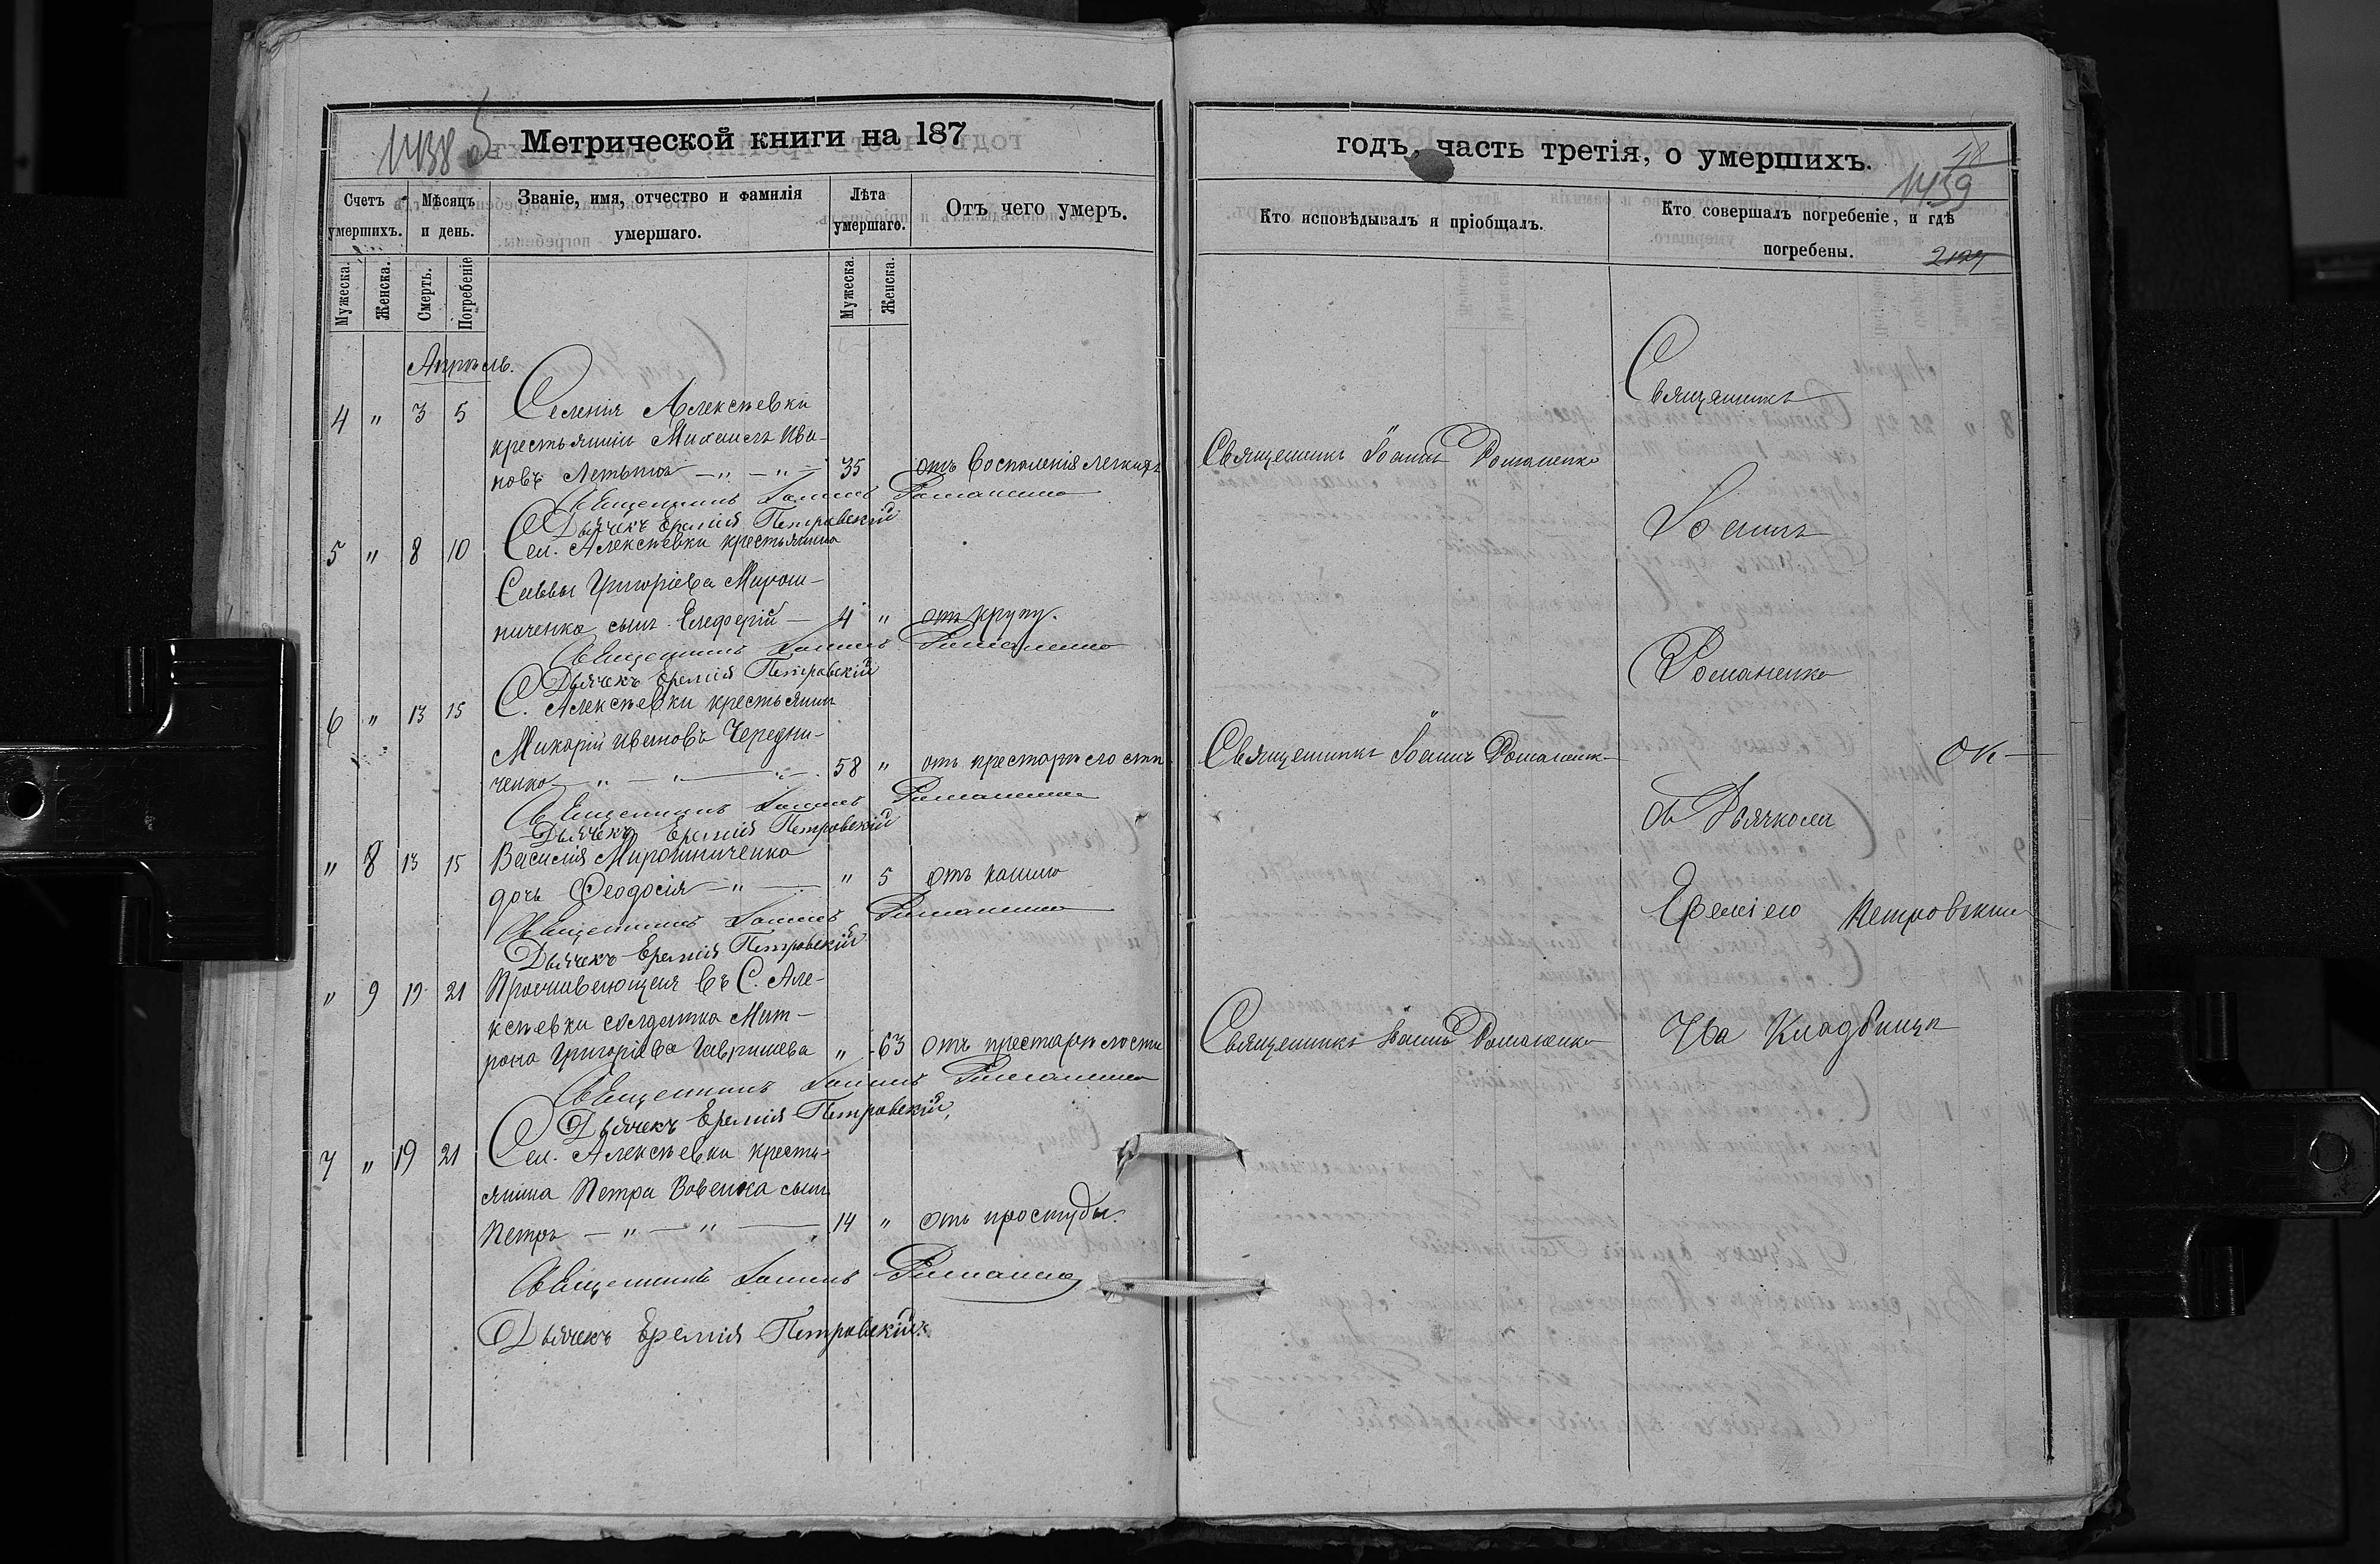 1438 об
Метрической книги на 187
Счетъ умершихъ.
Мѣсяцъ и день.
Званіе, имя, отчество и фамилія умершаго.
Лѣта умершаго.
Отъ чего умеръ.
Мужеска.
Женска.
Смерть.
Погребеніе
Мужеска.
Женска.
Апрѣль.
4 " 3 5 Селенія Алексѣевки
крестьянинъ Михаилъ Ива-
новъ 35 отъ воспаленія легкихъ
Священникъ Іоаннъ Романенко
Дьячекъ Еремія Петровскій
5 " 8 10 Сел. Алексѣевки крестьянина
Саввы Григоріева Мирош-
ниченка сынъ Елеферій — 4 " отъ крупу.
Священникъ Іоаннъ Романенко
Дьячекъ Еремія Петровскій
6 " 13 15 С. Алексѣевки крестьянинъ
Макарій Ивановъ Чередни-
ченко — " — " — 58 " отъ престарѣлости
Священникъ Іоаннъ Романенко
Дьячекъ Еремія Петровскій
" 8 13 15 Василія Мирошниченка
дочь Феодосія — " — " 5 отъ кашлю
Священникъ Іоаннъ Романенко
Дьячекъ Еремія Петровскій
" 9 19 21 Проживающая въ С. Але-
ксѣевки солдатка Мат-
рона Григоріева Гавришева " 63 отъ престарѣлости
Священникъ Іоаннъ Романенко
Дьячекъ Еремія Петровскій,
7 " 19 21 Сел. Алексѣевки кресть-
янина Петра Вовенка сынъ
Петръ — " — " — 14 " отъ простуды.
Священникъ Іоаннъ Романенко
Дьячекъ Еремія Петровскій.
годъ, часть третія, о умершихъ.
48
1439
Кто исповѣдывалъ и пріобщалъ.
Кто совершалъ погребеніе, и гдѣ
погребены.
Священникъ Іоаннъ Романенко
Священникъ Іоаннъ Романенко
Священникъ Іоаннъ Романенко
Священникъ
Іоаннъ
Романенко
съ Дьячкомъ
Ереміею Петровскимъ
На Кладбищѣ